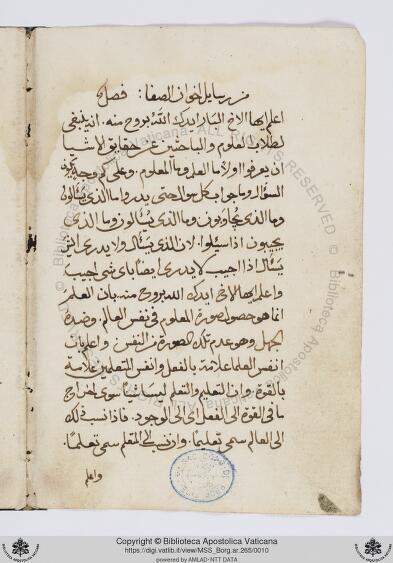 من رسايل اخوان الصفا: فصل
اعلم ايها الاخ البار ايدك الله بروح منه. انه ينبغي
لطلاب العلوم والباحثين عن حقايق الاشيا
ان يعرفوا اولا ما العلم وما المعلوم. وعلى كم وجه يكون
السؤال وما جواب كل سوال حتى يدروا ما الذي يسالون
وما الذي يجاوبون وما الذي يسالون وما الذي
يجيبون اذا سيلوا. لان الذي يسال ولا يدري ايش
يسال اذا اجيب لا يدري ايضا باي شي اجيب
واعلم ايها الاخ ايدك الله بروح منه. بان العلم
انما هو حصول صورة المعلوم في نفس العالم. وضده
الجهل وهو عدم تلك الصورة من النفس. واعلم بان
انفس العلما علامة بالفعل وانفس المتعلمين علامة
بالقوة. وان التعليم والتعلم ليسا شيا سوى اخراج
ما في القوة الى الفعل اي الى الوجود. فاذا نسب ذلك
الى العالم سمي تعليما. وان نسب الى المتعلم سمي تعلما.
واعلم
Copyright © Biblioteca Apostolica Vaticana
https://digi.vatlib.it/view/MSS_Borg.ar.265/0010
powered by AMLAD-NTT DATA